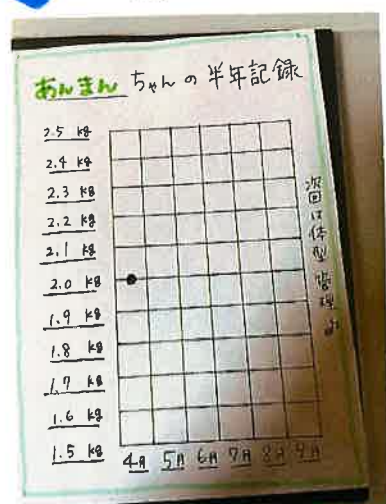 あんまんちゃんの半年記録
2.5 kg
2.4 kg
2.3 kg
2.2 kg
2.1 kg
2.0 kg
1.9 kg
1.8 kg
1.7 kg
1.6 kg
1.5 kg
4月 5月 6月 7月 8月 9月
次回は体型管理